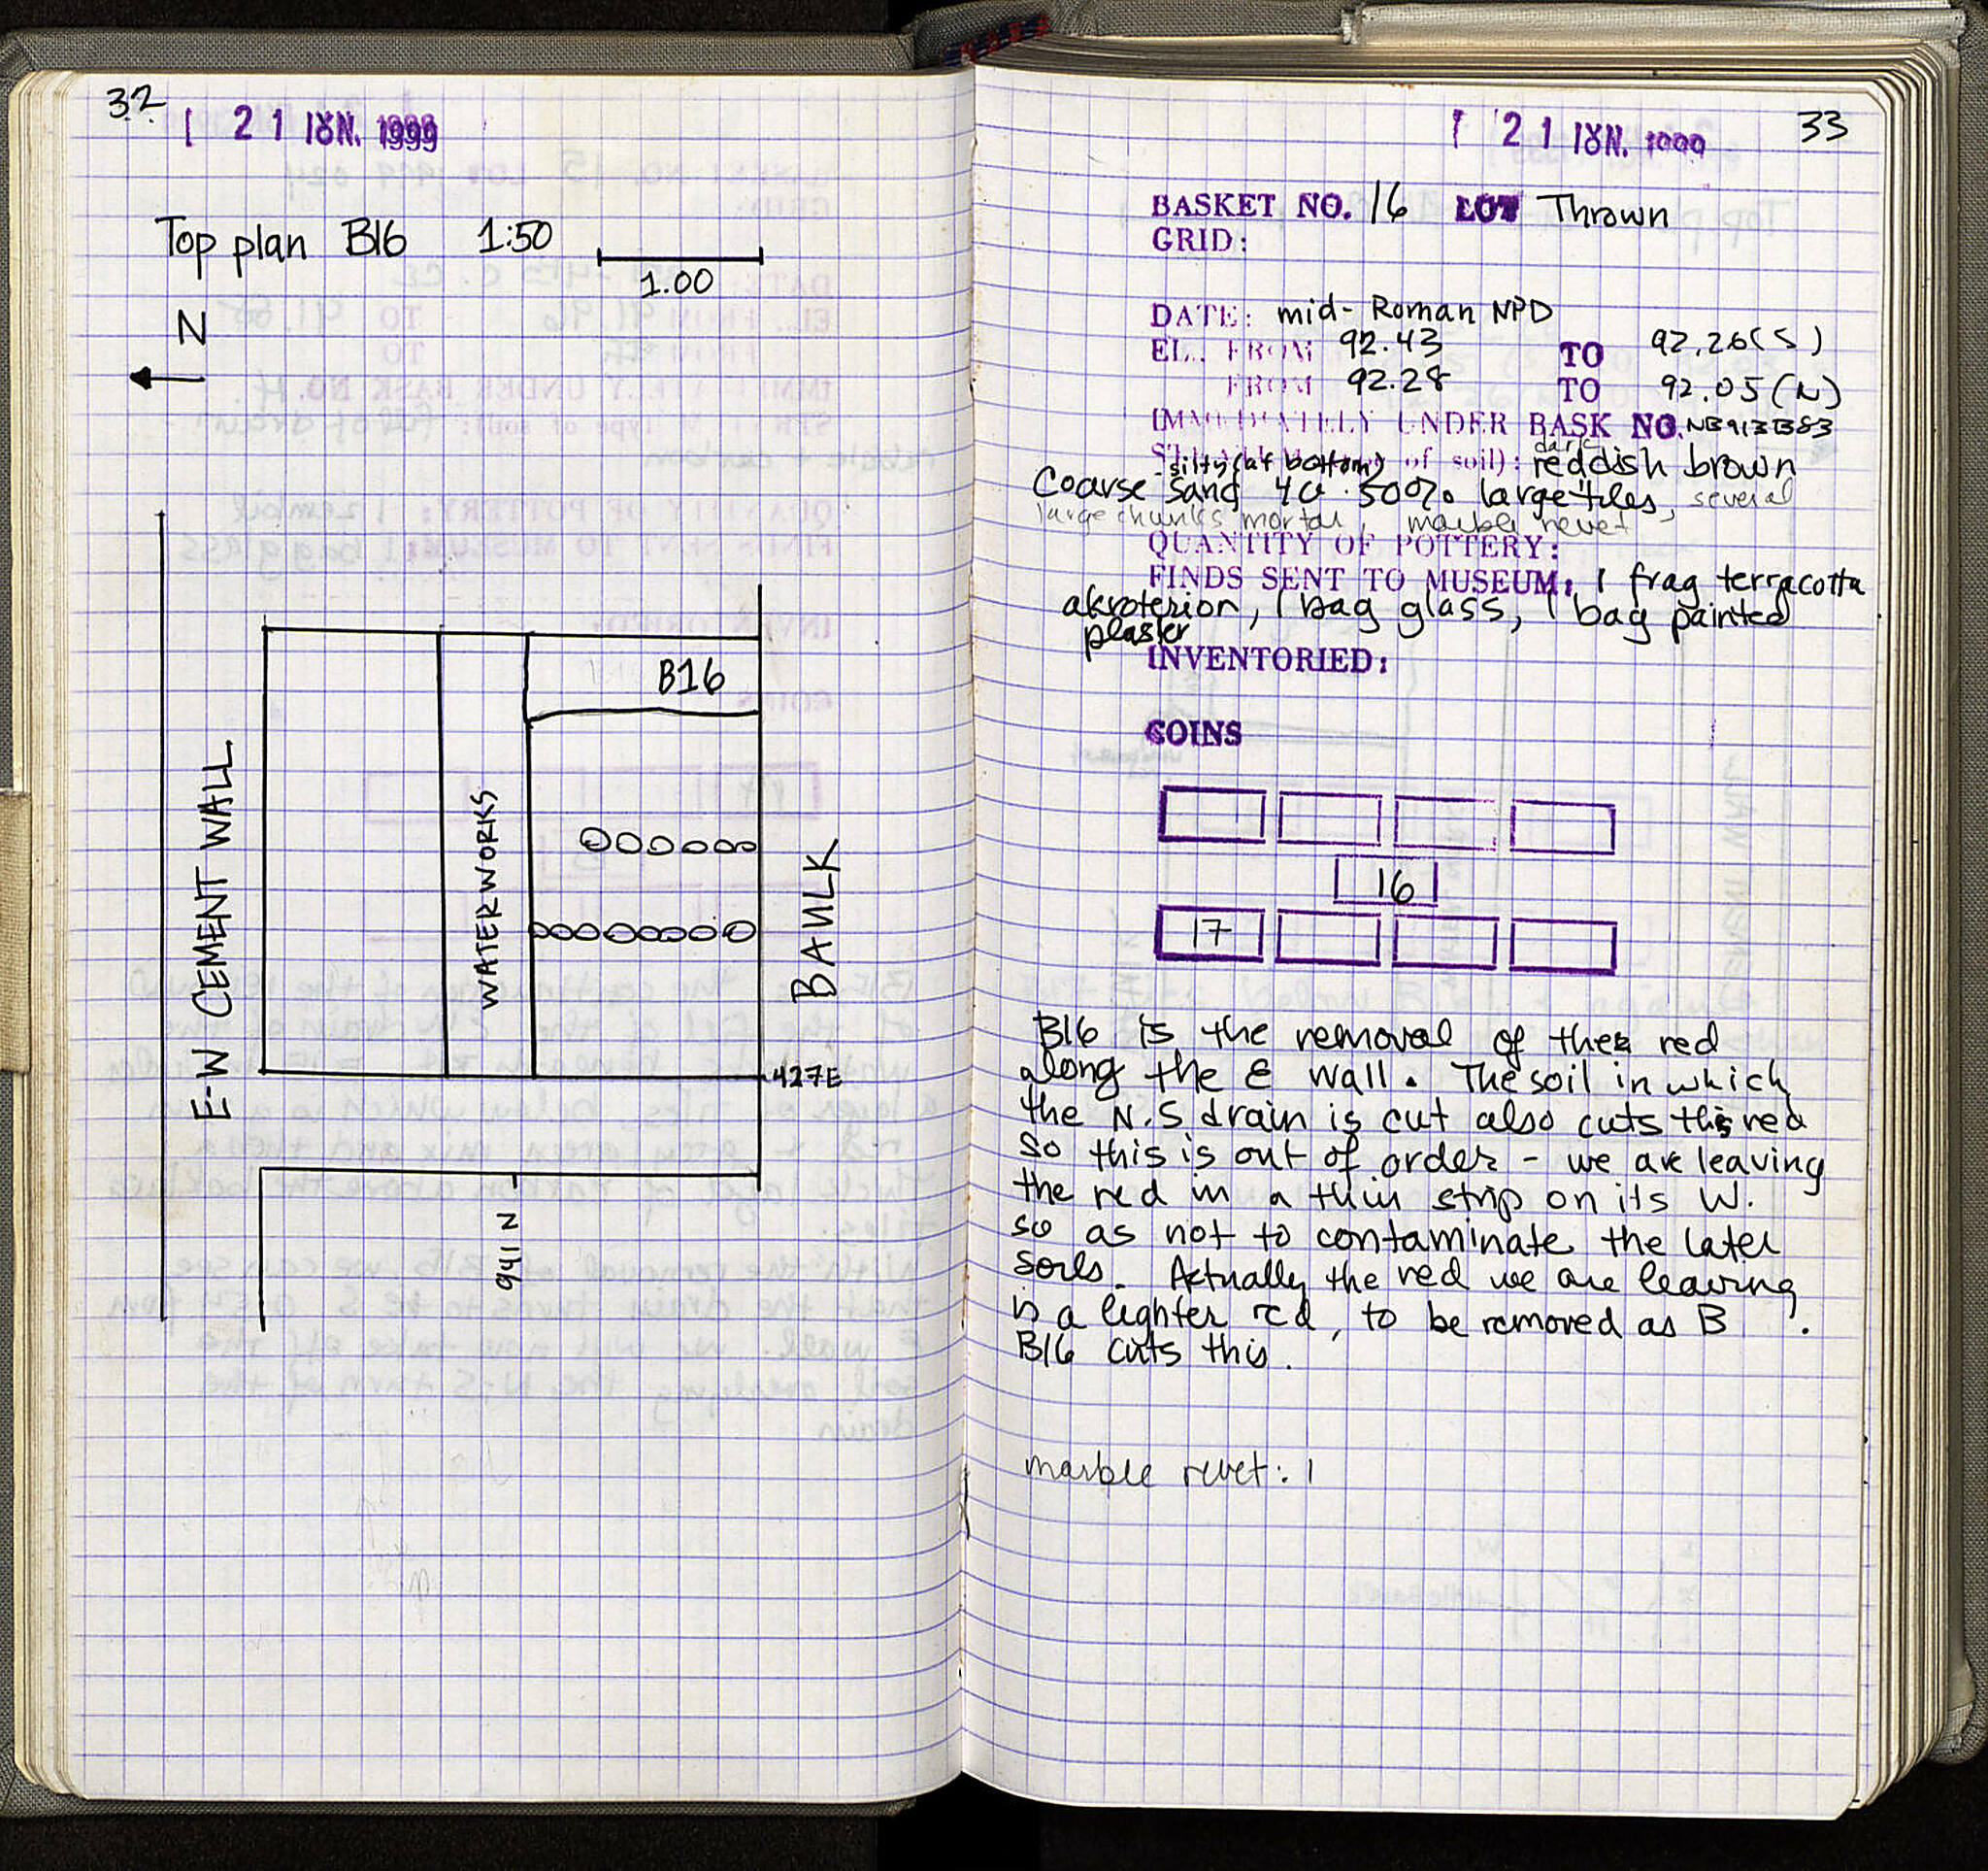 32
21 ΙΟΥΝ. 1999
Top plan B16 1:50
1.00
N
B16
E-W CEMENT WALL
WATERWORKS
BAULK
427E
941 N
21 ΙΟΥΝ. 1999
33
BASKET NO. 16 LOT Thrown
GRID:
DATE: mid-Roman NPD
EL. FROM 92.43 TO 92.26(S)
FROM 92.28 TO 92.05(N)
IMMEDIATELY UNDER BASK NO. NB913B83
of soil): dark reddish brown
- silty (at bottom)
Coarse sand 40-50% large tiles, several
large chunks mortar, marble revet
QUANTITY OF POTTERY:
FINDS SENT TO MUSEUM: 1 frag terracotta
akroterion, 1 bag glass, 1 bag painted
plaster
INVENTORIED:
COINS
16
17
B16 is the removal of the red
along the E wall. The soil in which
the N.S drain is cut also cuts this red
so this is out of order - we are leaving
the red in a thin strip on its W.
so as not to contaminate the later
soils. Actually the red we are leaving
is a lighter red, to be removed as B .
B16 cuts this.
marble revet: 1